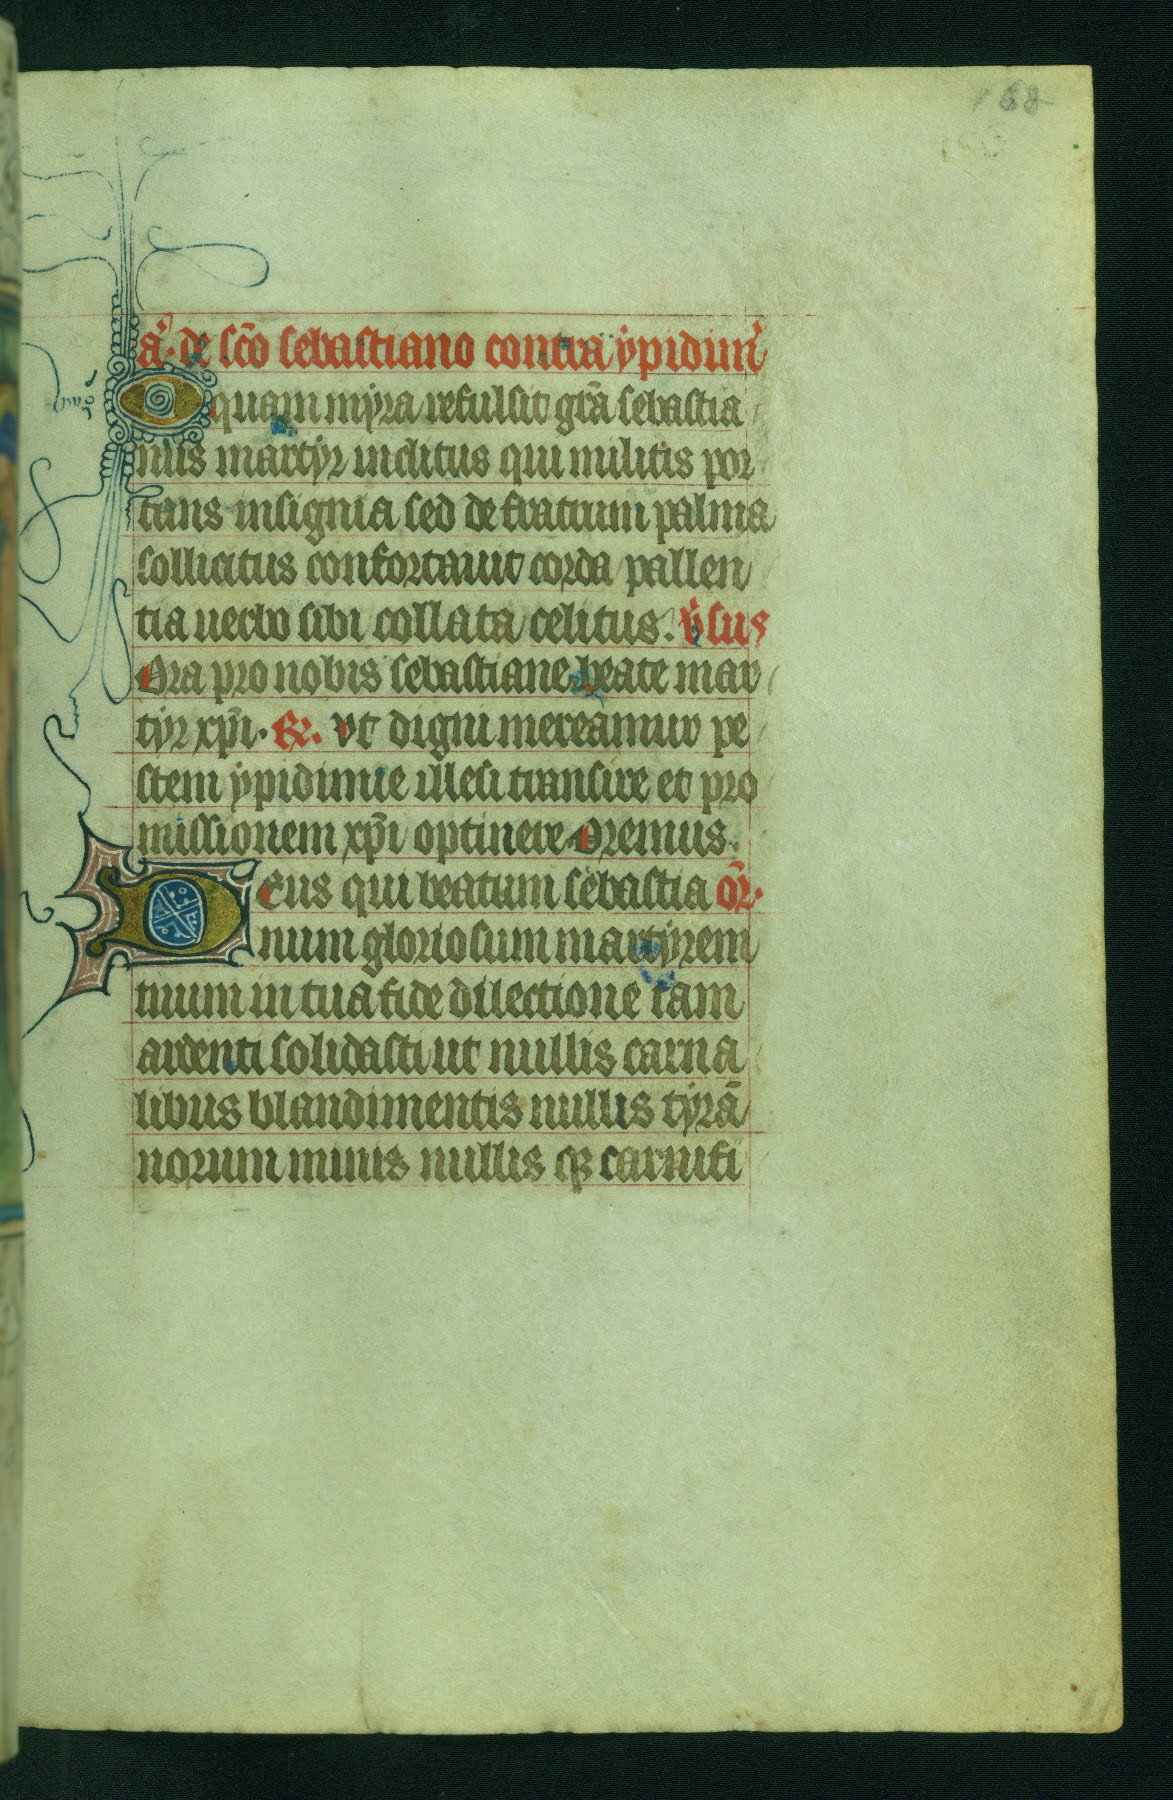 168
a'. de sc̄o sebastiano contra ẏpidim'
O quam mẏra refulsit gr̄a sebastia
nus martẏr inclitus qui militis por
tans insignia sed de fratrum palma
sollicitus confortauit corda pallen
tia uerbo sibi collata celitus. v̓sus
Ora pro nobis sebastiane beate mar
tẏr xp̄i. R. vt digni mereamur pe
stem ẏpidimie illesi transire et pro
missionem xp̄i optinere. Oremus.
Deus qui beatum sebastia or̄.
num gloriosum martẏrem
tuum in tua fide dilectione tam
ardenti solidasti ut nullis carna
libus blandimentis nullis tẏrā
norum minis nullis qꝫ carnifi